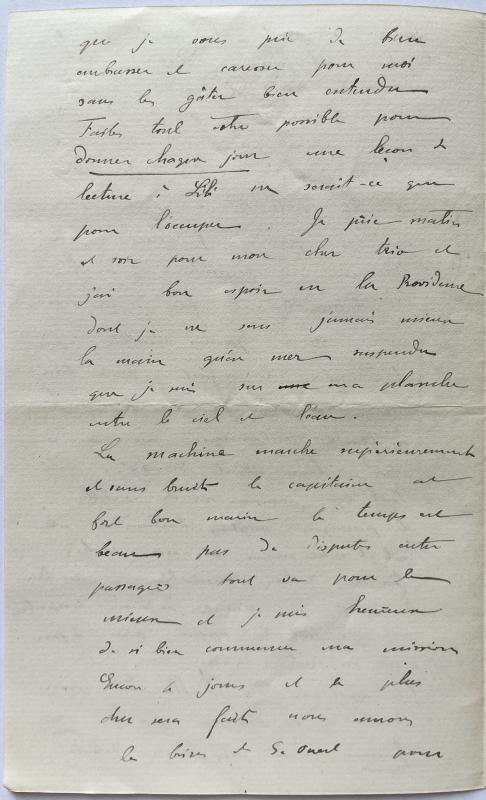 que je vous prie de bien
embrasser et caresser pour moi
sans les gâter bien entendu
Faites tout votre possible pour
donner chaque jour une leçon de
lecture à Lili ne serait-ce que
pour l'occuper. Je prie matin
et soir pour mon cher trio et
j'ai bon espoir en la Providence
dont je ne sens jamais mieux
la main qu'en mer suspendu
que je suis sur ma planche
entre le ciel et l'eau.
La machine marche supérieurement
et sans bruit le capitaine est
fort bon marin le temps est
beau pas de disputes entre
passagers tout va pour le
mieux et je suis heureux
de si bien commencer ma mission
Encore 4 jours et le plus
dur sera fait nous aurons
la brise de S. Ouest pour